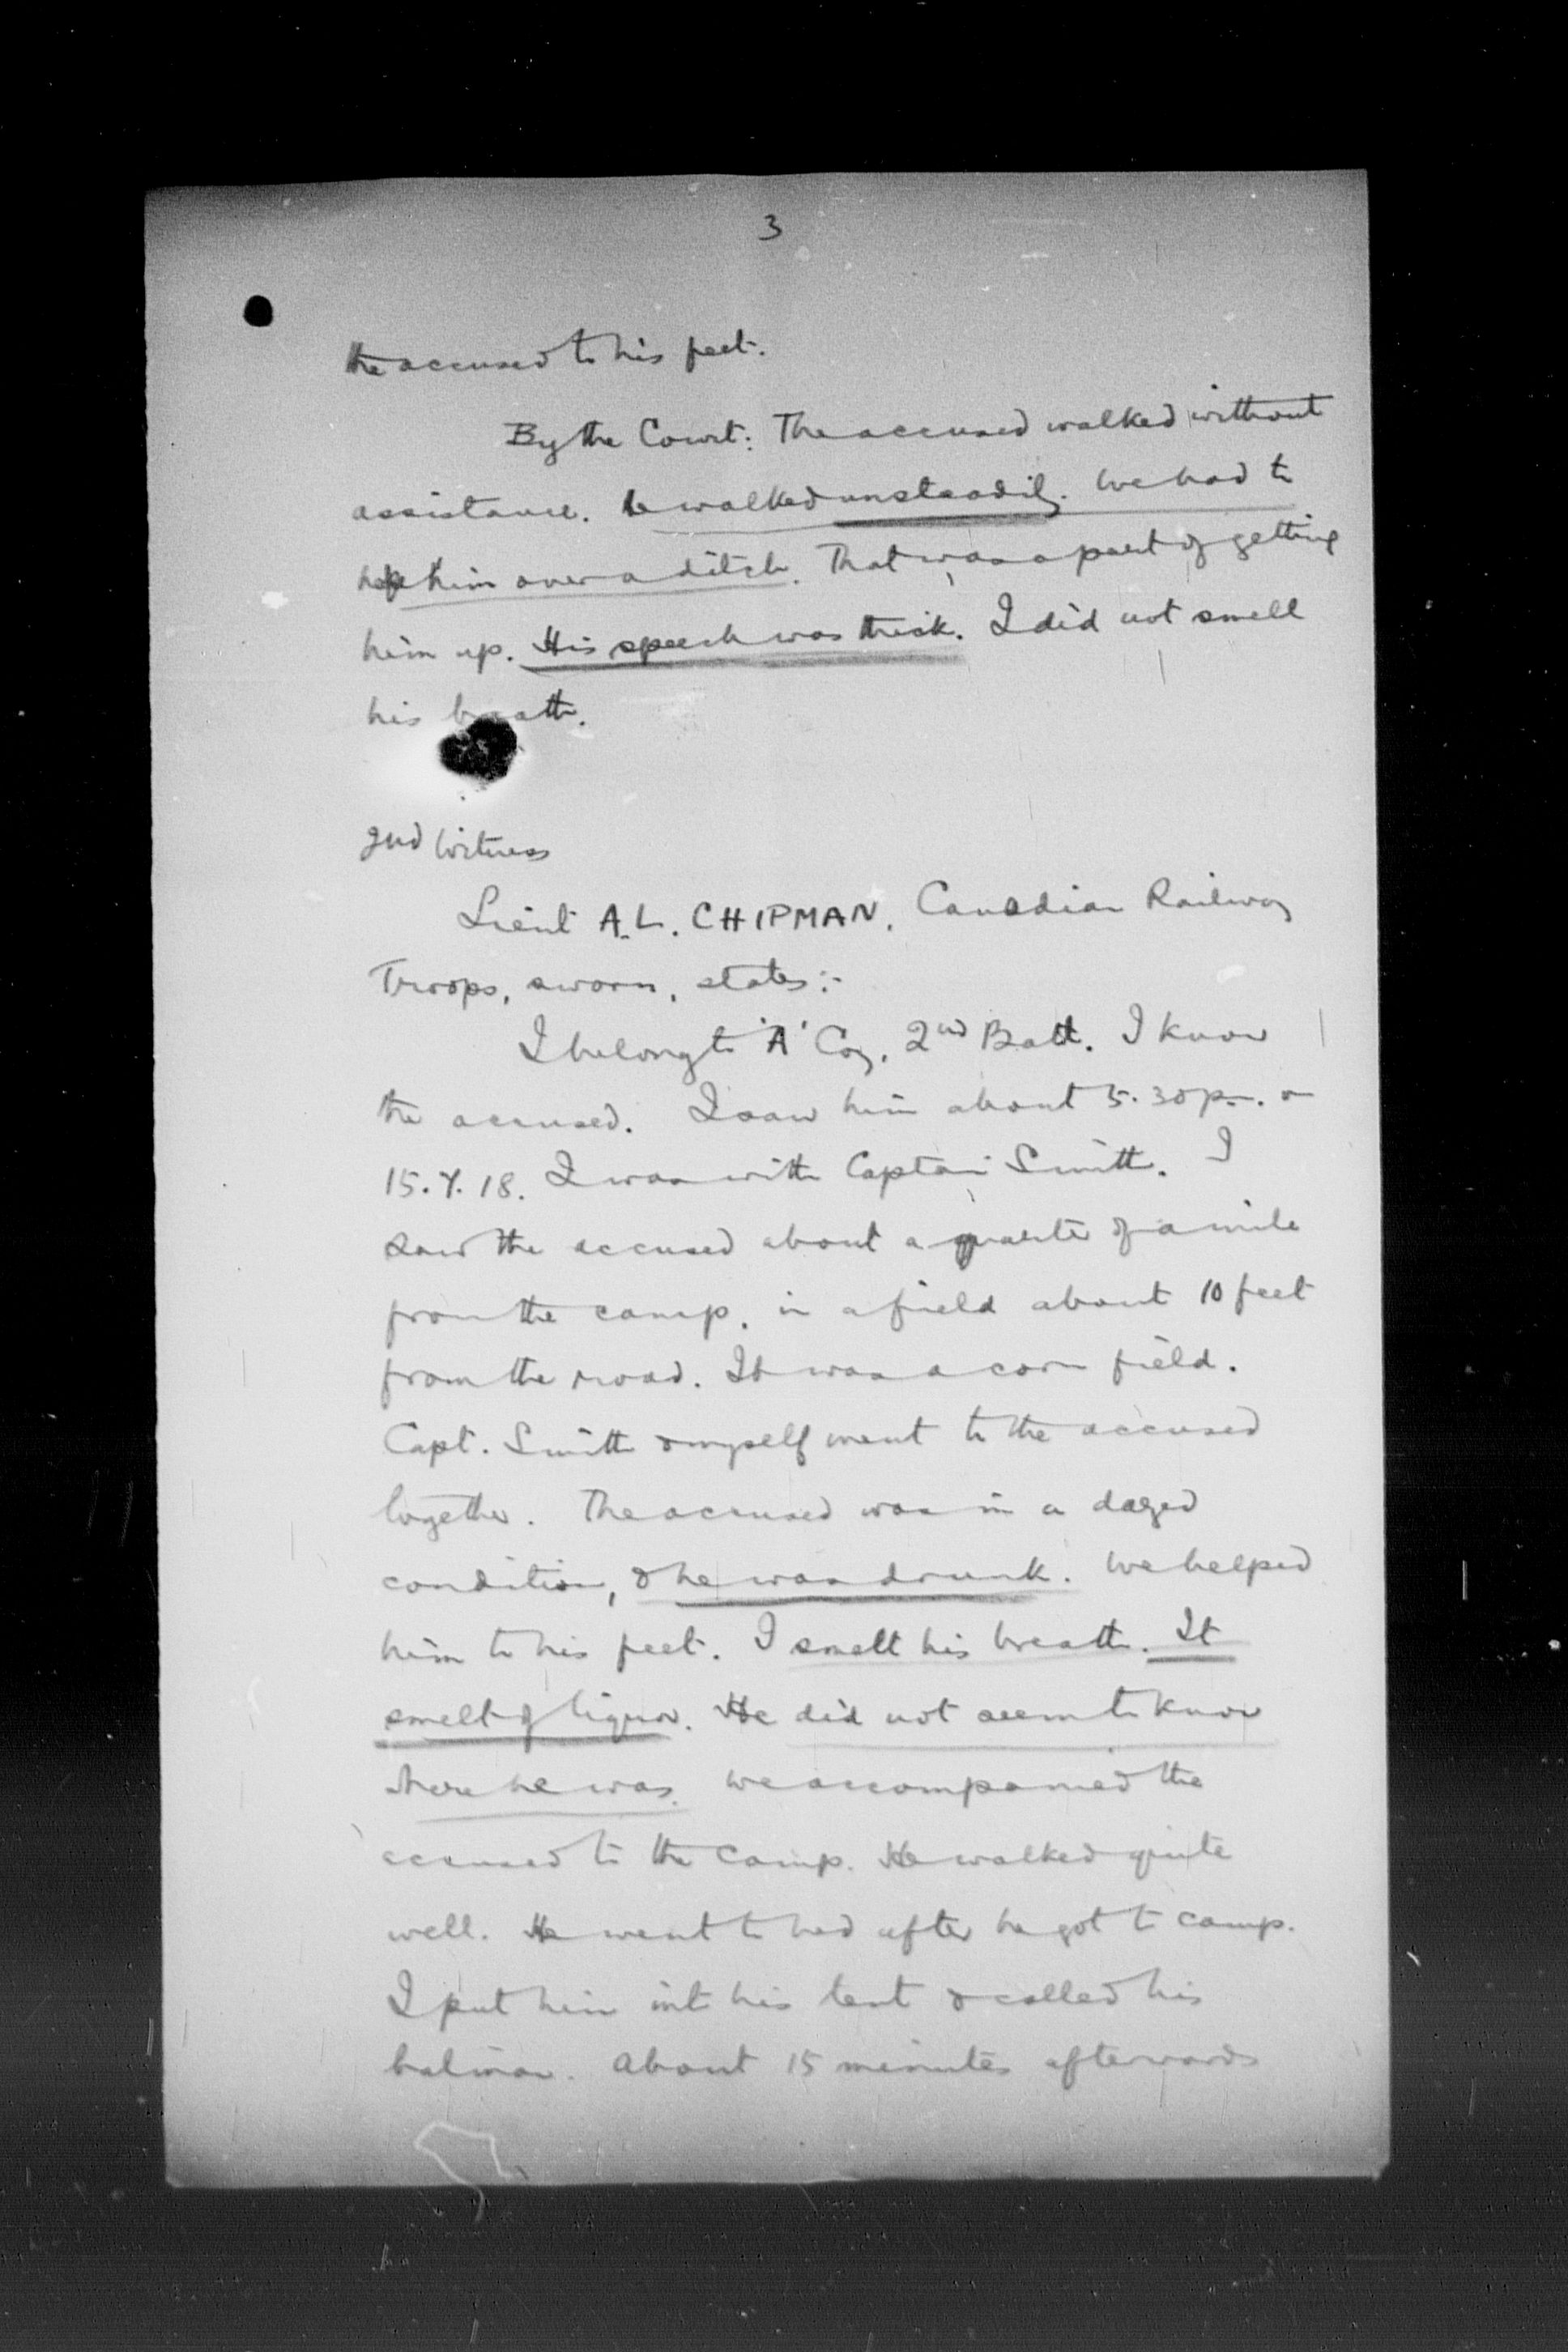 3
the accused to his feet.
By the Court: The accused walked without
assistance. he walked unsteadily. We had to
help him over a ditch. That was a part of getting
him up. His speech was thick. I did not smell
his breath.
2nd Witness
Lieut A.L. CHIPMAN. Canadian Railway
Troops, sworn, states:-
I belong to 'A' Coy. 2nd Batt. I know
the accused. I saw him about 5.30 p.m. on
15.7.18. I was with Captain Smith. I
saw the accused about a quarter of a mile
from the camp, in a field about 10 feet
from the road. It was a corn field.
Capt. Smith & myself went to the accused
together. The accused was in a dazed
condition, & he was drunk. We helped
him to his feet. I smelt his breath. It
smelt of liquor. He did not seem to know
where he was. We accompanied the
accused to the camp. He walked quite
well. He went to bed after he got to camp.
I put him into his tent & called his
batman. About 15 minutes afterwards